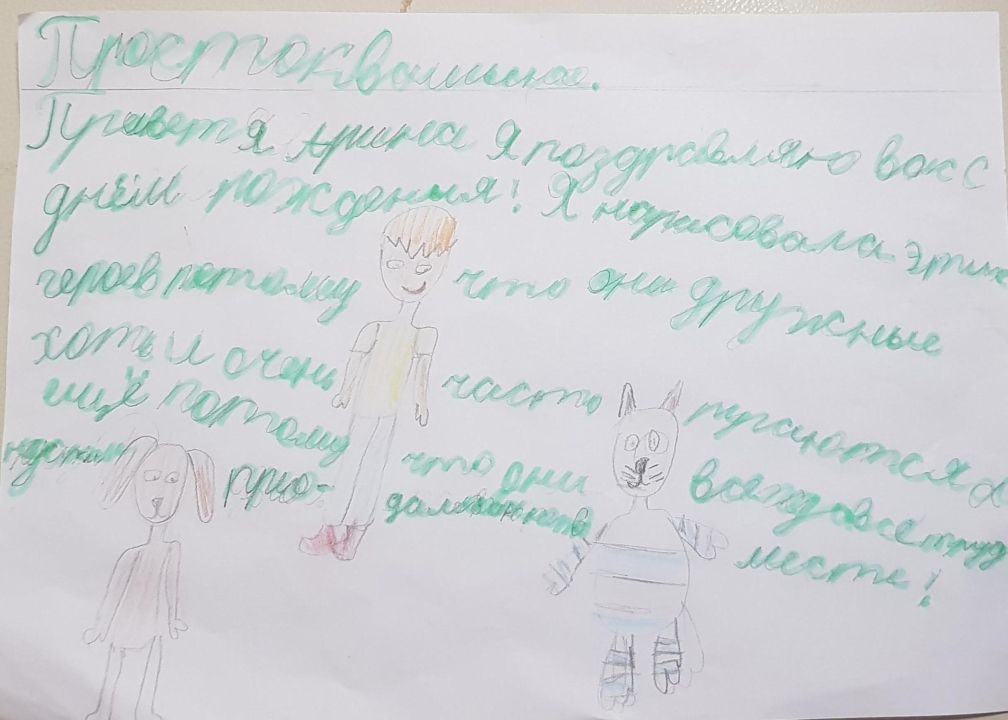 Простоквашиное.
Привет Я Арина Я поздравляю вас с
днём рождения! Я нарисовала этих
героев потому что они дружные
хоть и очень часто ругаются а
ещё потому что они всегда все труд
ности прео- далевают вместе!